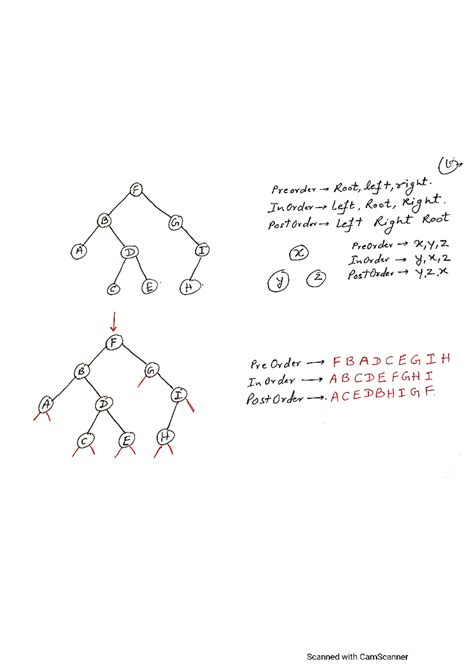 F
B
G
A
D
I
C
E
H
Preorder → Root, left, right.
InOrder → Left, Root, Right.
PostOrder → Left Right Root
x
y
z
PreOrder → x, y, z
InOrder → y, x, z
PostOrder → y, z, x
F
B
G
A
D
I
C
E
H
PreOrder → F B A D C E G I H
InOrder → A B C D E F G H I
PostOrder → A C E D B H I G F.
Scanned with CamScanner